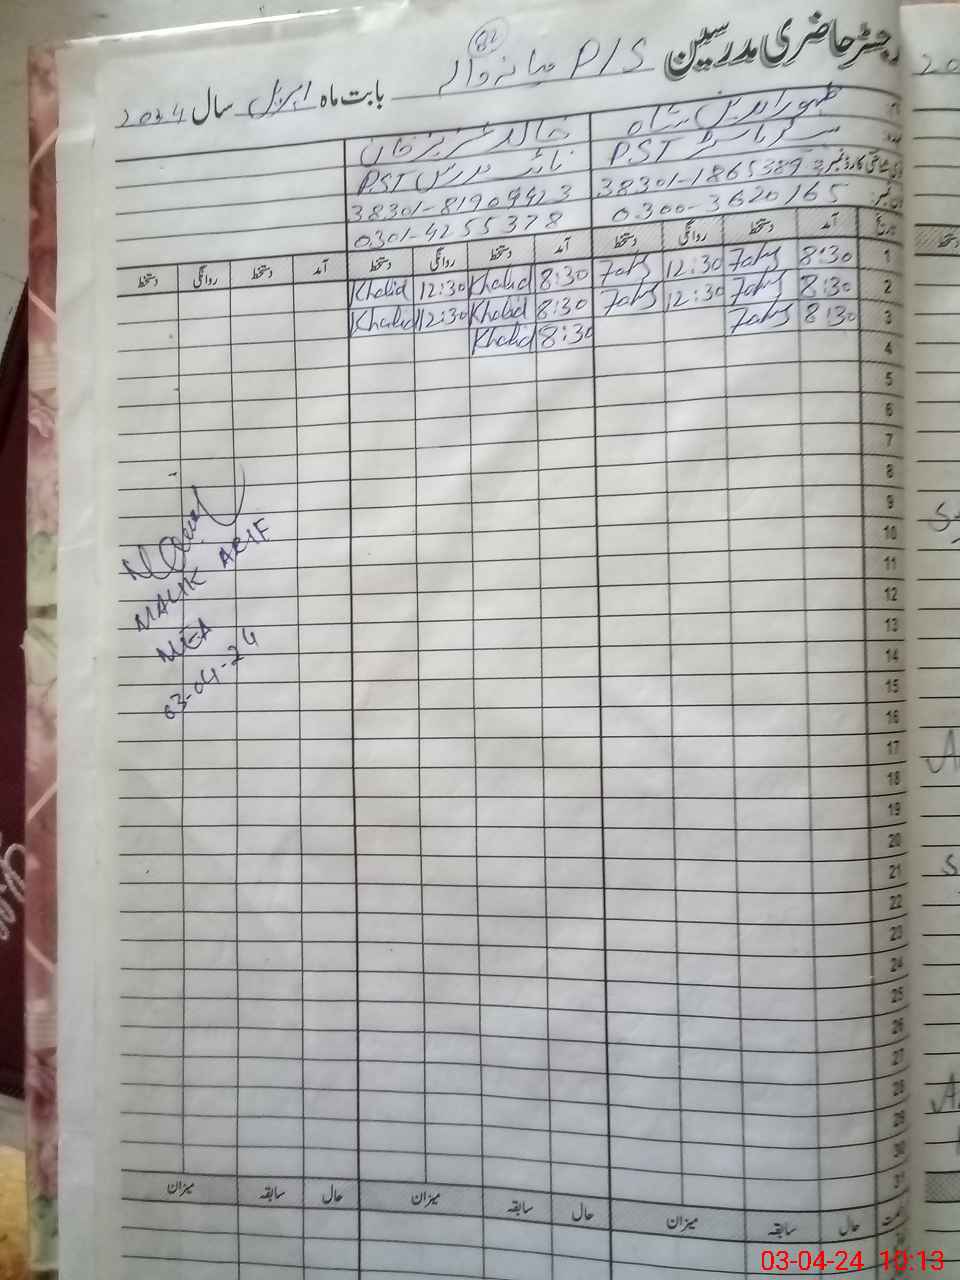 رجسٹر حاضری مدرسین P/S میانہ والہ
بابت ماہ اپریل سال 2024
ظہور الدین شاہ
PST
38301-1865389-3
0300-3620165
خالد عزیز خان
نائب مدرس PST
38301-8190942-3
0301-4255378
تاریخ آمد دستخط روانگی دستخط آمد دستخط روانگی دستخط آمد دستخط روانگی دستخط
1 8:30 12:30 8:30 Khalid 12:30 Khalid
2 8:30 12:30 8:30 Khalid 12:30 Khalid
3 8:30 8:30 Khalid
4
5
6
7
8
9
10
11
12
13
14
15
16
17
18
19
20
21
22
23
24
25
26
27
28
29
30
31
MALIK ARIF
MEA
03-04-24
حال سابقہ میزان حال سابقہ میزان حال سابقہ میزان
03-04-24 10:13